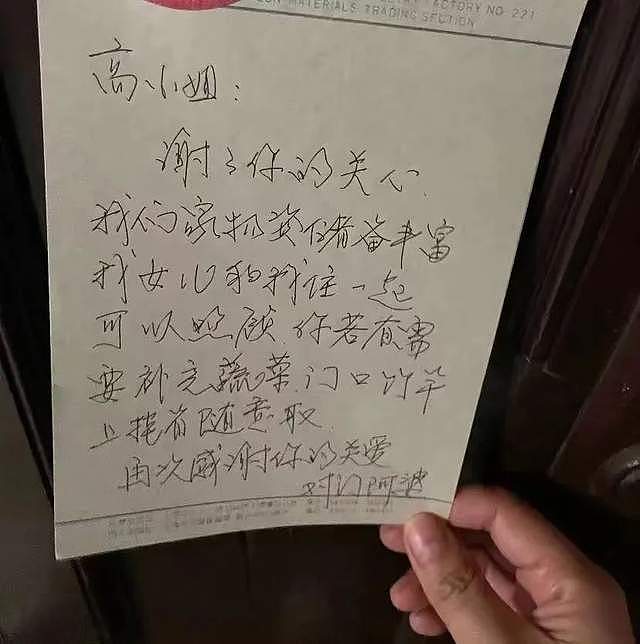 FACTORY NO 221
MATERIALS TRADING SECTION
高小姐：
谢了你的关心.
我们家物资储备丰富
我女儿和我住一起
可以照顾.你若有需
要补充蔬菜门口竹竿
上挂有随意取.
再次感谢你的关爱
对门阿婆